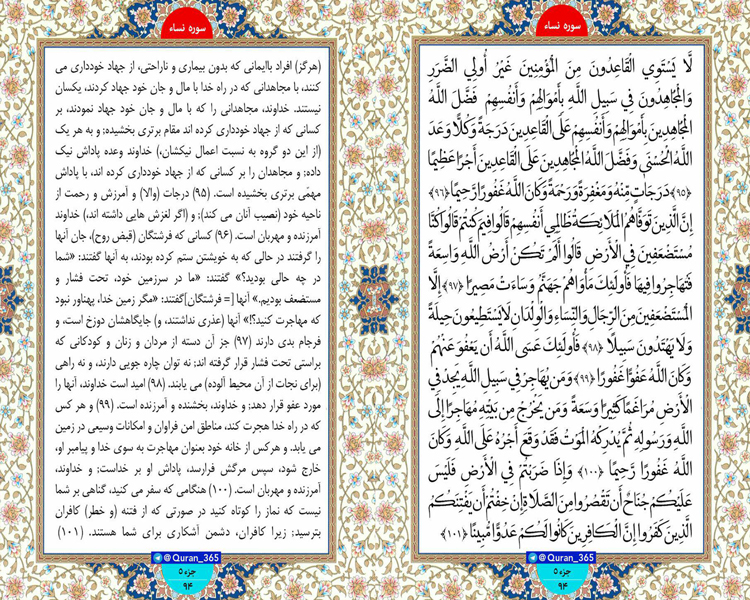 سوره نساء
لَّا يَسْتَوِي الْقَاعِدُونَ مِنَ الْمُؤْمِنِينَ غَيْرُ أُولِي الضَّرَرِ
وَالْمُجَاهِدُونَ فِي سَبِيلِ اللَّهِ بِأَمْوَالِهِمْ وَأَنفُسِهِمْ فَضَّلَ اللَّهُ
الْمُجَاهِدِينَ بِأَمْوَالِهِمْ وَأَنفُسِهِمْ عَلَى الْقَاعِدِينَ دَرَجَةً وَكُلًّا وَعَدَ
اللَّهُ الْحُسْنَى وَفَضَّلَ اللَّهُ الْمُجَاهِدِينَ عَلَى الْقَاعِدِينَ أَجْرًا عَظِيمًا
﴿۹۵﴾ دَرَجَاتٍ مِّنْهُ وَمَغْفِرَةً وَرَحْمَةً وَكَانَ اللَّهُ غَفُورًا رَّحِيمًا ﴿۹۶﴾
إِنَّ الَّذِينَ تَوَفَّاهُمُ الْمَلَائِكَةُ ظَالِمِي أَنفُسِهِمْ قَالُوا فِيمَ كُنتُمْ قَالُوا كُنَّا
مُسْتَضْعَفِينَ فِي الْأَرْضِ قَالُوا أَلَمْ تَكُنْ أَرْضُ اللَّهِ وَاسِعَةً
فَتُهَاجِرُوا فِيهَا فَأُولَئِكَ مَأْوَاهُمْ جَهَنَّمُ وَسَاءَتْ مَصِيرًا ﴿۹۷﴾ إِلَّا
الْمُسْتَضْعَفِينَ مِنَ الرِّجَالِ وَالنِّسَاءِ وَالْوِلْدَانِ لَا يَسْتَطِيعُونَ حِيلَةً
وَلَا يَهْتَدُونَ سَبِيلًا ﴿۹۸﴾ فَأُولَئِكَ عَسَى اللَّهُ أَن يَعْفُوَ عَنْهُمْ
وَكَانَ اللَّهُ عَفُوًّا غَفُورًا ﴿۹۹﴾ وَمَن يُهَاجِرْ فِي سَبِيلِ اللَّهِ يَجِدْ فِي
الْأَرْضِ مُرَاغَمًا كَثِيرًا وَسَعَةً وَمَن يَخْرُجْ مِن بَيْتِهِ مُهَاجِرًا إِلَى
اللَّهِ وَرَسُولِهِ ثُمَّ يُدْرِكْهُ الْمَوْتُ فَقَدْ وَقَعَ أَجْرُهُ عَلَى اللَّهِ وَكَانَ
اللَّهُ غَفُورًا رَّحِيمًا ﴿۱۰۰﴾ وَإِذَا ضَرَبْتُمْ فِي الْأَرْضِ فَلَيْسَ
عَلَيْكُمْ جُنَاحٌ أَن تَقْصُرُوا مِنَ الصَّلَاةِ إِنْ خِفْتُمْ أَن يَفْتِنَكُمُ
الَّذِينَ كَفَرُوا إِنَّ الْكَافِرِينَ كَانُوا لَكُمْ عَدُوًّا مُّبِينًا ﴿۱۰۱﴾
@Quran_365
جزء ۵
۹۴
سوره نساء
(هرگز) افراد باایمانی که بدون بیماری و ناراحتی، از جهاد خودداری می
کنند، با مجاهدانی که در راه خدا با مال و جان خود جهاد کردند، یکسان
نیستند. خداوند، مجاهدانی را که با مال و جان خود جهاد نمودند، بر
کسانی که از جهاد خودداری کرده اند مقام برتری بخشیده؛ و به هر یک
(از این دو گروه به نسبت اعمال نیکشان،) خداوند وعده پاداش نیک
داده; و مجاهدان را بر کسانی که از جهاد خودداری کرده اند، با پاداش
مهمّی برتری بخشیده است. (۹۵) درجات (والا) و آمرزش و رحمت از
ناحیه خود (نصیب آنان می کند)؛ و (اگر لغزش هایی داشته اند،) خداوند
آمرزنده و مهربان است. (۹۶) کسانی که فرشتگان (قبض روح)، جان آنها
را گرفتند در حالی که به خویشتن ستم کرده بودند، به آنها گفتند: «شما
در چه حالی بودید؟» گفتند: «ما در سرزمین خود، تحت فشار و
مستضعف بودیم.» آنها [= فرشتگان]گفتند: «مگر زمین خدا، پهناور نبود
که مهاجرت کنید؟!» آنها (عذری نداشتند، و) جایگاهشان دوزخ است، و
فرجام بدی دارند (۹۷) جز آن دسته از مردان و زنان و کودکانی که
براستی تحت فشار قرار گرفته اند; نه توان چاره جویی دارند، و نه راهی
(برای نجات از آن محیط آلوده) می یابند. (۹۸) امید است خداوند، آنها را
مورد عفو قرار دهد; و خداوند، بخشنده و آمرزنده است. (۹۹) و هر کس
که در راه خدا هجرت کند، مناطق امن فراوان و امکانات وسیعی در زمین
می یابد. و هرکس از خانه خود بعنوان مهاجرت به سوی خدا و پیامبر او،
خارج شود، سپس مرگش فرارسد، پاداش او بر خداست; و خداوند،
آمرزنده و مهربان است. (۱۰۰) هنگامی که سفر می کنید، گناهی بر شما
نیست که نماز را کوتاه کنید در صورتی که از فتنه (و خطر) کافران
بترسید; زیرا کافران، دشمن آشکاری برای شما هستند. (۱۰۱)
@Quran_365
جزء ۵
۹۴